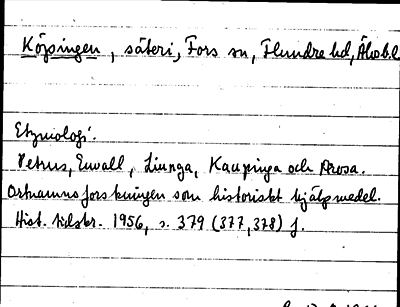 Köpingen, säteri, Fors sn, Flundre hd, Älvsb. l
Etymologi.
Petrus, Envall, Liunga, Kaupinga och Arosa.
Ortnamnsforskningen som historiskt hjälpmedel.
Hist. tidskr. 1956, s. 379 (377, 378) f.